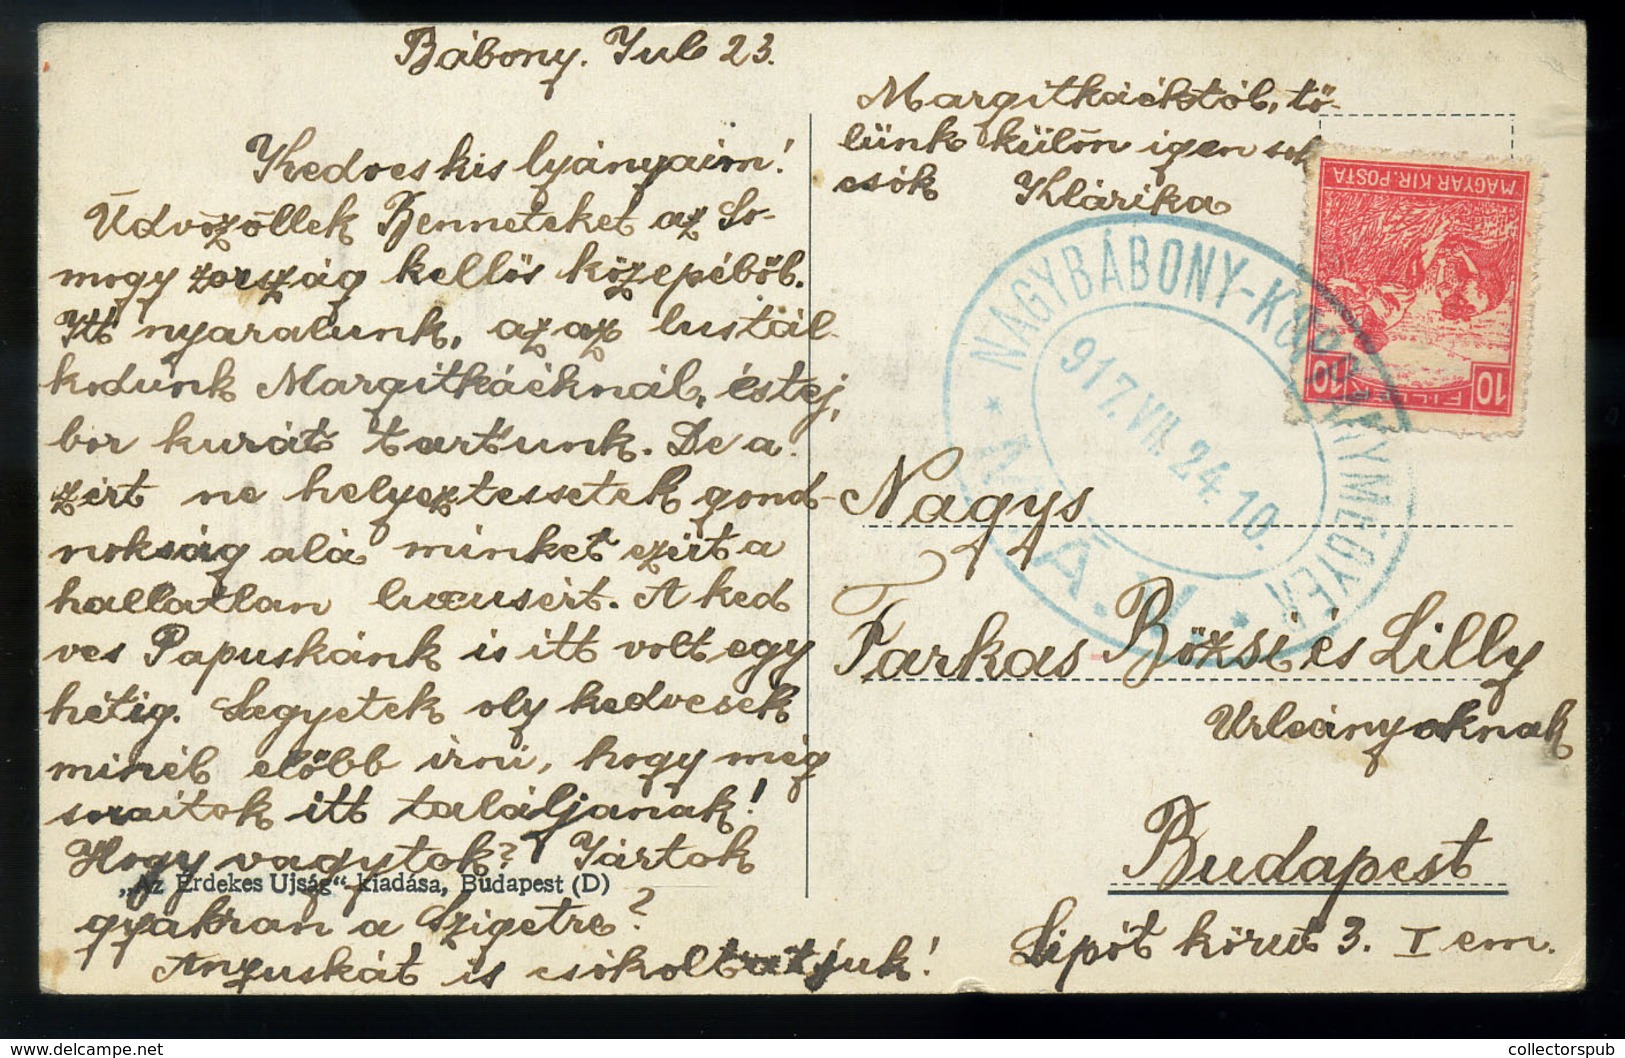 Bábony. Jul 23.
Kedves kis lyányaim!
Üdvözöllek Benneteket az So-
mogyország kellős közepéből.
Itt nyaralunk, azaz lustál-
kodunk Margitkáéknál, és tej,
bor kurát tartunk. De a
zért ne helyeztessetek gond-
nokság alá minket ezért a
hallatlan luxusért. A ked
ves Papuskánk is itt volt egy
hétig. Legyetek oly kedvesek
minél előbb írni, hogy még
soraitok itt találjanak!
Hogy vagytok? Jártok
„Az Érdekes Ujság“ kiadása, Budapest (D)
gyakran a Szigetre?
Anyuskát is csókoltatjuk!
Margitkáéktól, tő-
lünk külön igen sok
csók Klárika
MAGYAR KIR. POSTA
10 FILLÉR 10
NAGYBÁBONY-KOPPÁNYMEGYER
917. VII. 24. 10.
M.Á.V.
Nagys
Farkas Bözsi és Lilly
Urleányoknak
Budapest
Lipót körut 3. I em.
collectorspub.com